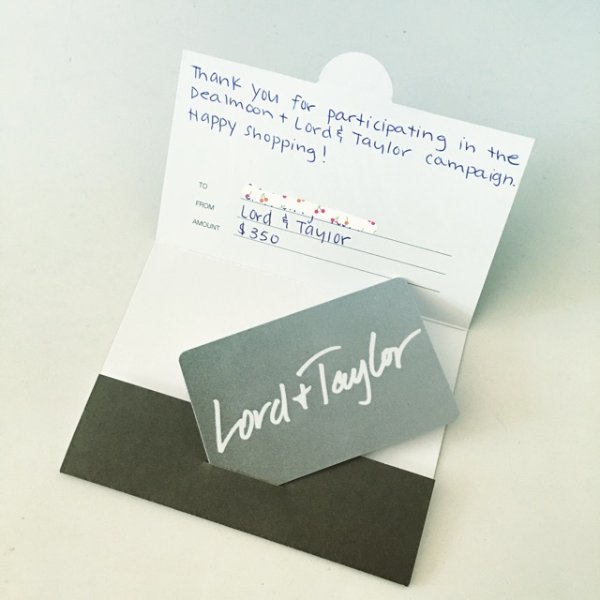 Thank you for participating in the
Dealmoon + Lord & Taylor campaign.
Happy shopping!
TO
FROM Lord & Taylor
AMOUNT $350
Lord + Taylor